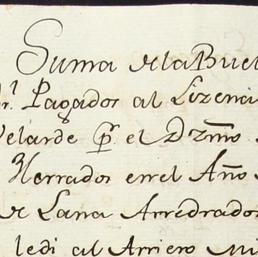 Suma de la Buel
r.l Pagados al Lizencia
Velarde pr. el Dzmo
Herrados en el Año
de Lana Arredrados
ledi al Arriero Mi